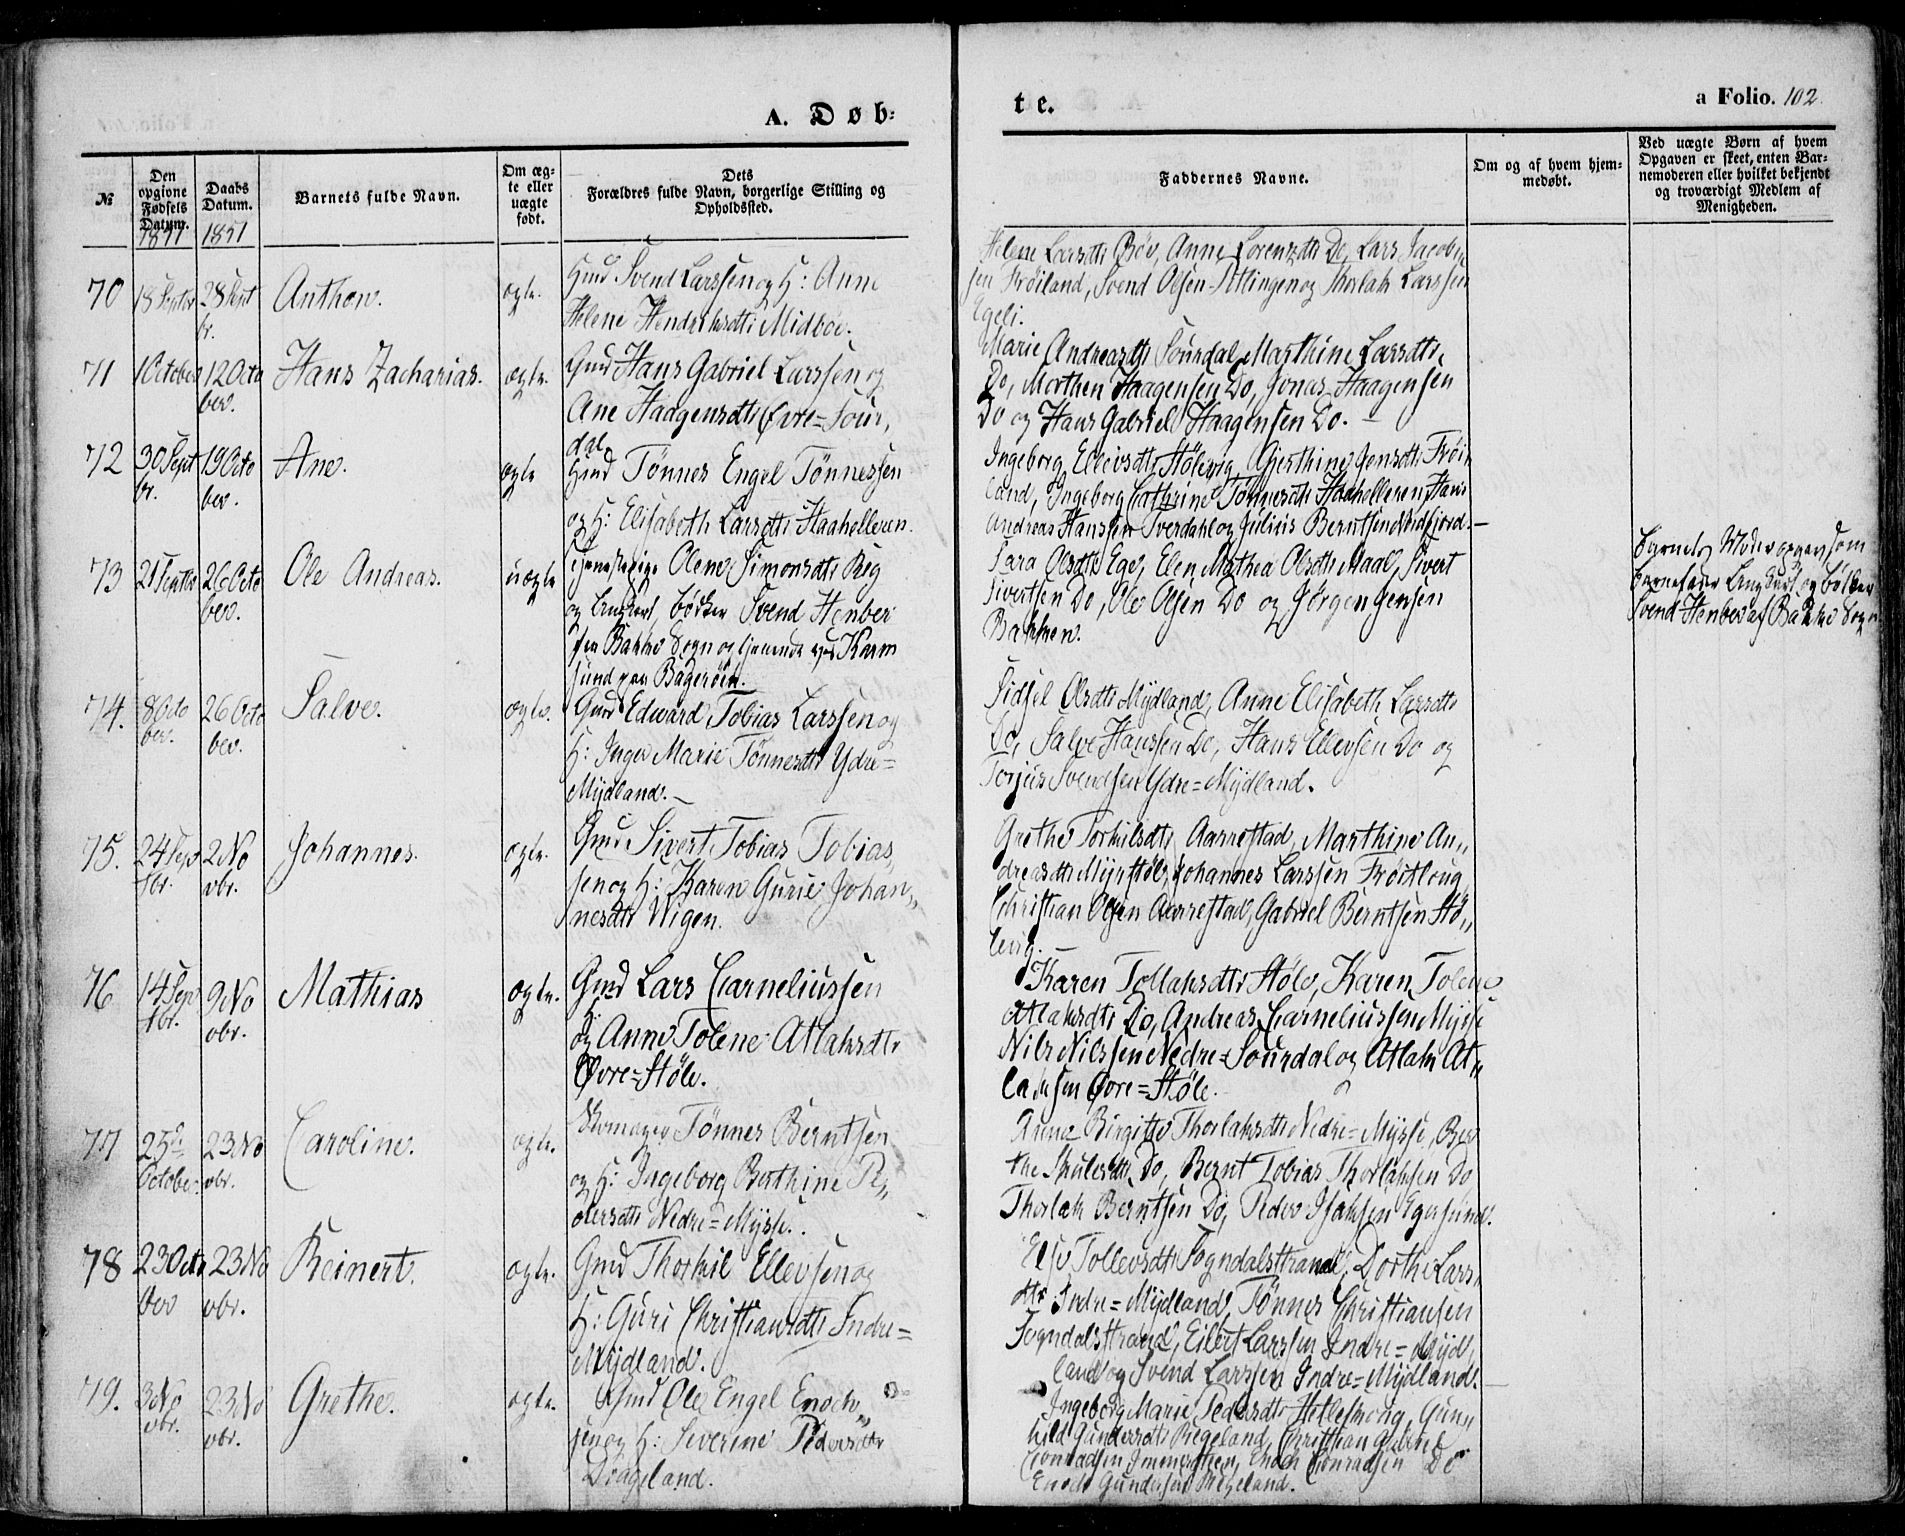 A. Døb-
te.
a Folio. 102.
№
Den opgivne Fødsels Datum.
Daabs Datum.
Barnets fulde Navn.
Om ægte eller uægte født.
Dets Forældres fulde Navn, borgerlige Stilling og Opholdssted.
Faddernes Navne.
Om og af hvem hjemmedøbt.
Ved uægte Børn af hvem Opgaven er skeet, enten Barnemoderen eller hvilket bekjendt og troværdigt Medlem af Menigheden.
1851 1851
70 18 Septbr 28 Septbr. Anthon. ægte.
Gmd Svend Larssen og H: Anne
Helene Hendriksdtr Midbøe.
Helene Larsdtr Bøe, Anne Lorenzdtr Do, Lars Jacob-
sen Frøiland, Svend Olsen og Thorlak Larssen
Egeli.
71 1 October 12 October. Hans Zacharias. ægte.
Gmd Hans Gabriel Larssen og
Ane Haagensdtr Øvre=Sour,
dal
Marie Andreasdtr Sourdal, Marthine Larsdtr
Do, Morthen Haagensen Do, Jonas Haagensen
Do og Hans Gabriel Haagensen Do. —
72 30 Septbr. 19 October. Ane. ægte
Gmd Tønnes Engel Tønnessen
og H: Elisabeth Larsdtr Haahelleren.
Ingeborg Ellevsdtr Stølevig, Gjerthine Jensdtr Frøi
land, Ingeborg Cathrine Tønnesdtr Haahelleren, Hans
Andreas Hanssen Tverdahl og Julius Berntsen Nidfjord. —
73 21 Septbr 26 October. Ole Andreas. uægte
Tjenestepige Olene Simonsdtr Reg
og Ungkarl, bødker Svend Henber
fra Bakke Sogn og tjenende ved Karm
sund paa Bagerøen.
Sara Olsdtr Ege, Elen Mathea Olsdtr Maal, Sivert
Sivertsen Do, Ole Olsen Do og Jørgen Jensen
Bakken.
Barnets Moder opgav som
Barnefader Ungkarl og bødker
Svend Henber af Bakke Sogn
74. 8 October. 26 October. Salve. ægte.
Gmd Edward Tobias Larssen og
H: Inger Marie Tønnesdtr Ydre=
Mydland. —
Sidsel Olsdtr Mydland, Anne Elisabeth Larsdtr
Do, Salve Hanssen Do, Hans Ellevsen Do og
Torjus Svendsen Ydre=Mydland.
75. 24 Septbr. 2 Novbr. Johannes. ægte.
Gmd Sivert Tobias Tobias,
sen og H: Karen Gurie Johan„
nesdtr Vigen.
Grethe Torkilsdtr Aarrestad, Marthine An„
dreasdtr Myrstøl, Johannes Larssen Frøitlong
Christian Olsen Aarrestad, Gabriel Berntsen Stø„
levig.
76 14 Septbr. 9 Novbr. Mathias ægte.
Gmd Lars Carneliussen
og H: Anne Tolene Atlaksdtr
Øvre=Støle.
Karen Tollaksdtr Støle, Karen Tolene
Atlaksdtr Do, Andreas Carneliussen Mysse
Nils Nilssen Nedre=Sourdal og Atlak At„
laksen Øvre=Støle.
77 25de October. 23 Novbr. Caroline. ægte.
Skomager Tønnes Berntsen
og H: Ingeborg Berthine Pe„
dersdtr Nedre=Mysse.
Anna Birgitte Thorlaksdtr Nedre=Mysse, Ber
the Skulesdtr Do, Bernt Tobias Thorlaksen Do
Thorlak Berntsen Do, Peder Isaksen Egersund.
78 23 October 23 Novbr. Reinert. ægte.
Gmd Thorkil Ellevsen og
H: Guri Christiansdtr Indre=
Mydland.
Else Tollevsdtr Sogndalsstrand, Dorthe Lars
dtr Indre=Mydland, Tønnes Christiansen
Sogndalsstrand, Eilert Larssen Indre=Myd,
land og Svend Larssen Indre=Mydland. —
79. 3 Novbr. 23 Novbr. Grethe. ægte.
Gmd Ole Engel Enoch„
sen og H: Severine Pedersdtr
Drageland.
Ingeborg Marie Pedersdtr Hetleskoug, Gun„
hild Gundersdtr Regeland, Christian Gabriel
Conradsen Immerstien, Enoch Conradsen Do
Enoch Gundersen Regeland.